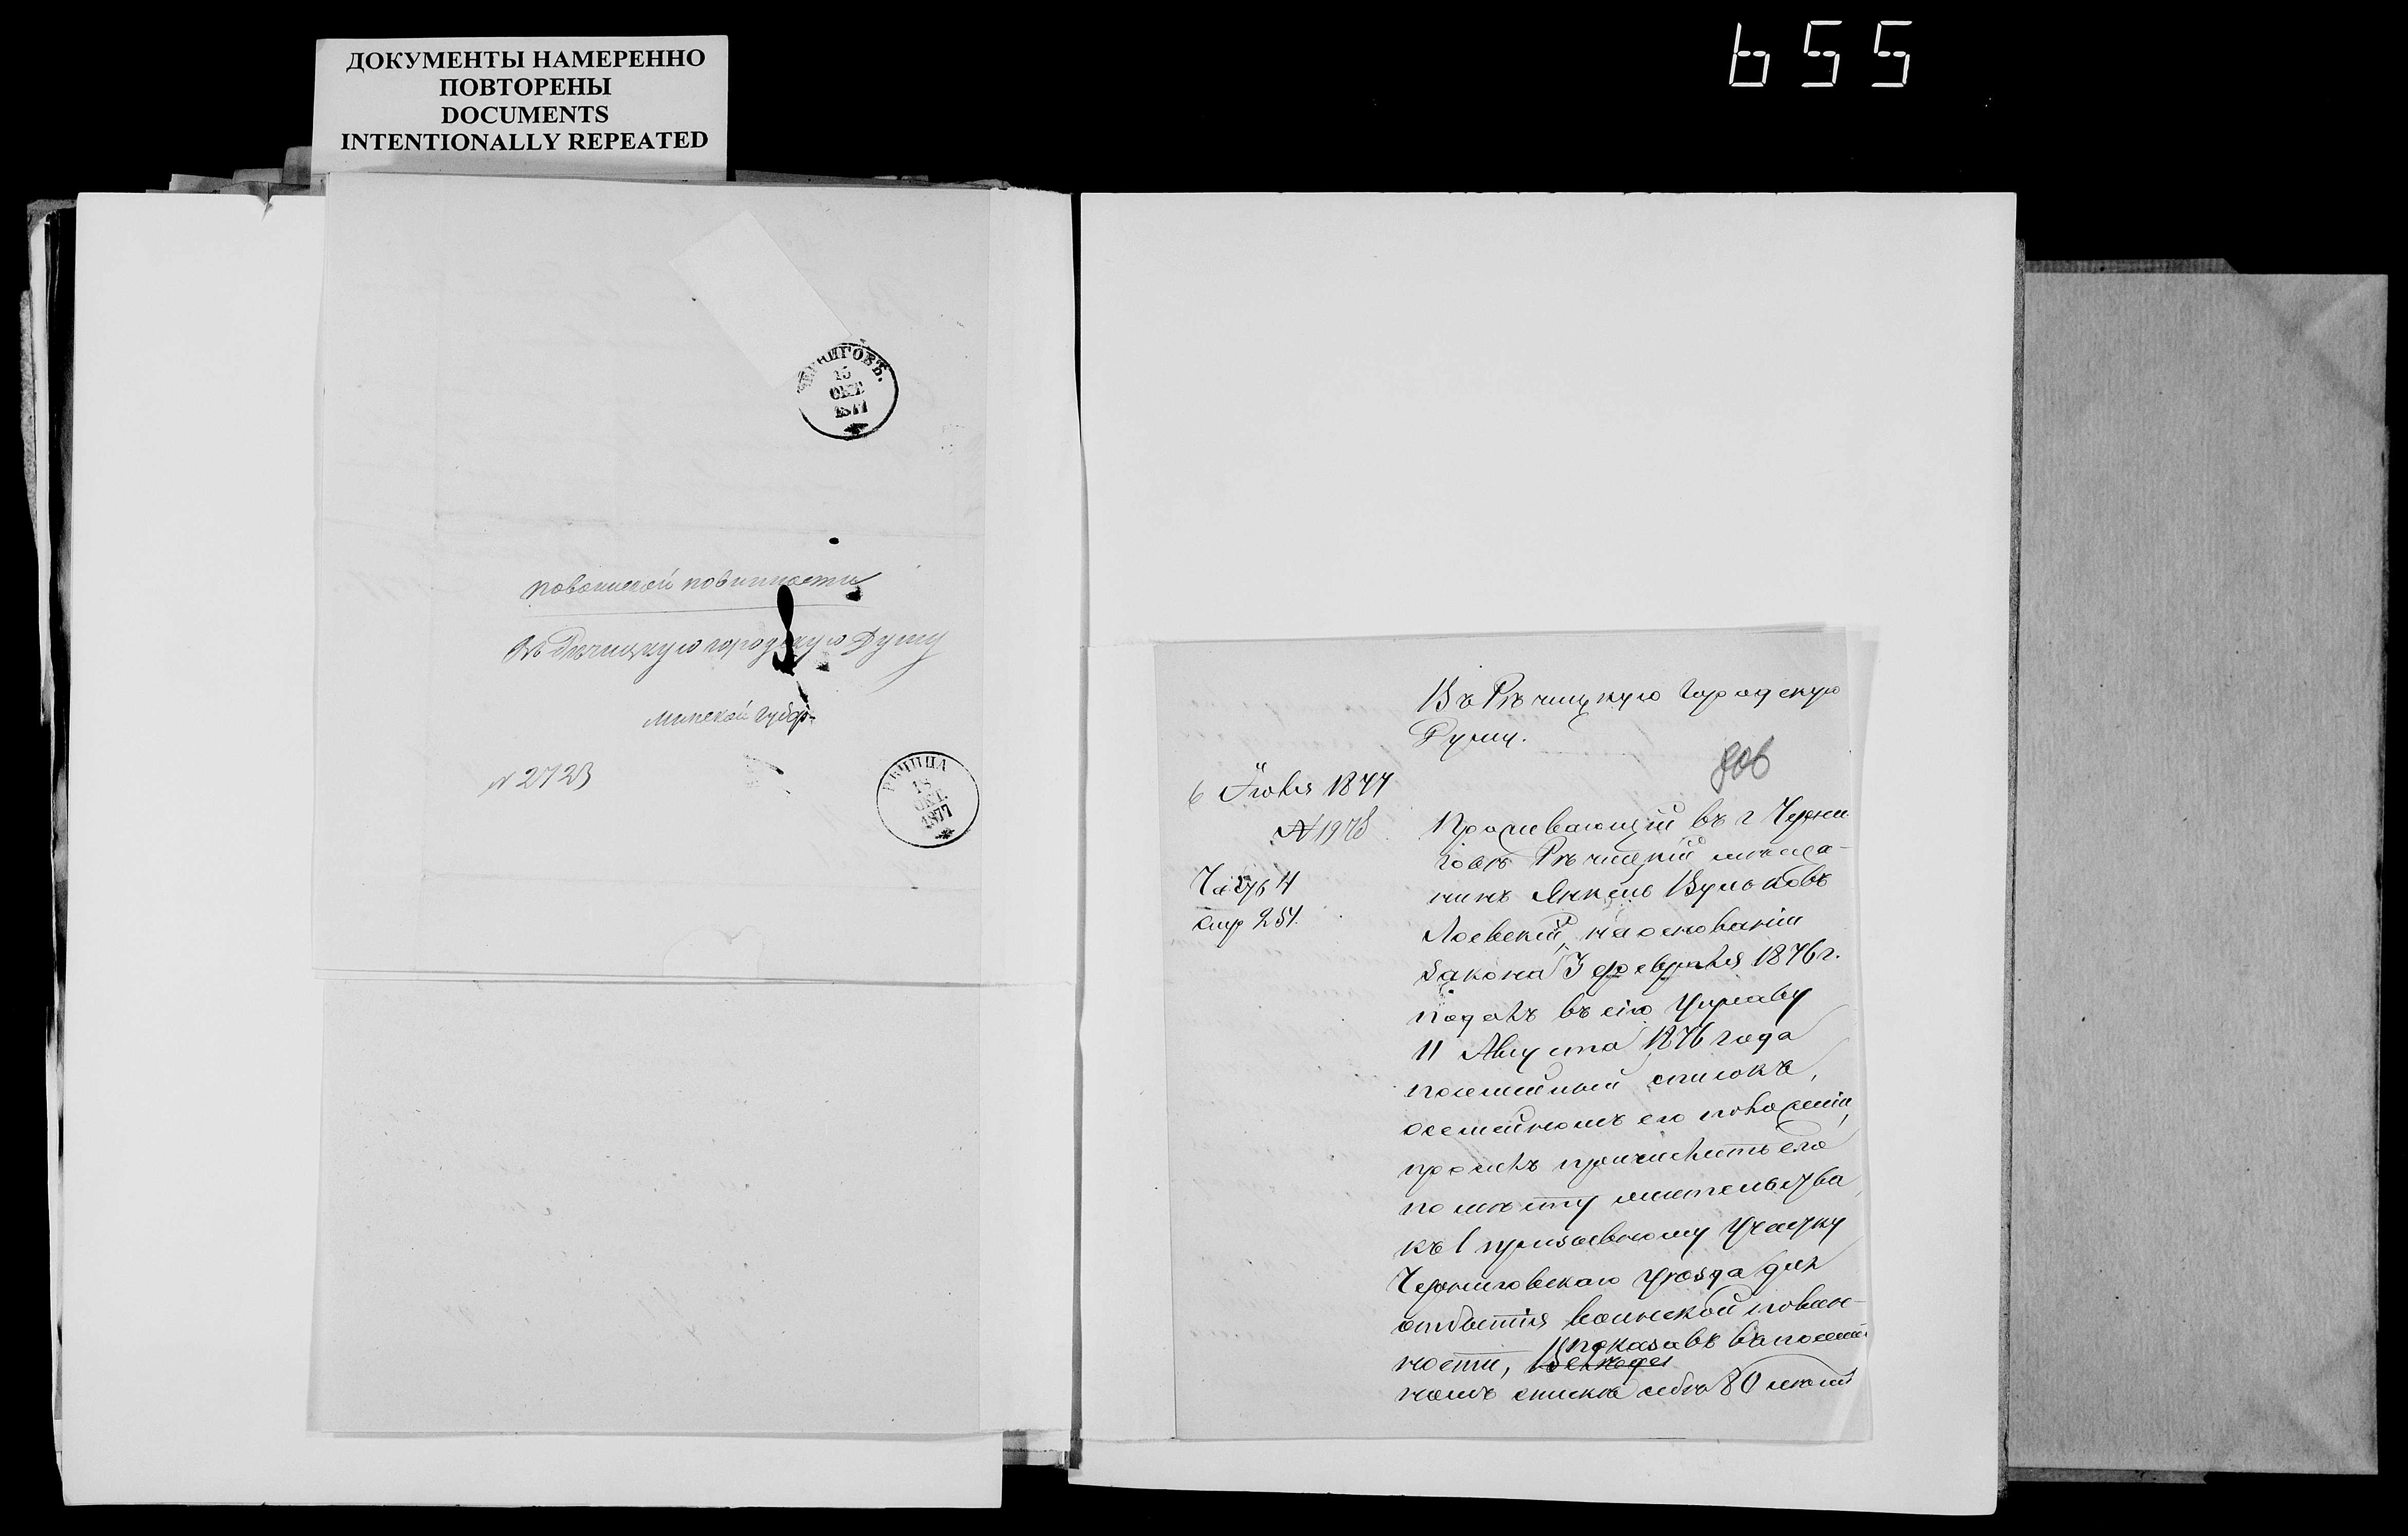 655
ДОКУМЕНТЫ НАМЕРЕННО
ПОВТОРЕНЫ
DOCUMENTS
INTENTIONALLY REPEATED
ЧЕРНИГОВЪ.
15
ОКТ.
1877
по воинской повинности
Въ Рѣчицкую городскую Думу
Минской Губер-
№ 2723
РѢЧИЦА
18
ОКТ.
1877
Въ Рѣчицкую Городскую
Думу.
6 Іюля 1877
№ 1978
стр 251.
Проживающій въ г Черни
говѣ Рѣчицкій мѣща-
нинъ Янкель Вульковъ
Лоевскій, на основаніи
закона 3 февраля 1876 г.
подалъ въ сію Управу
11 Августа 1876 года
посемейный списокъ,
о семейномъ его положеніи,
просилъ причислить его
по мѣсту жительства
къ 1 призывному участку
Черниговскаго уѣзда для
отбытія воинской повин-
показавъ въ посемей
ности,
номъ спискѣ себя 80 лѣтъ